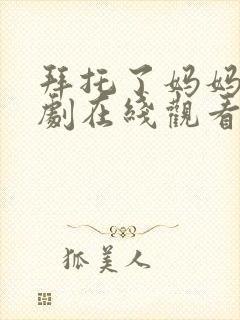 拜托了妈妈
劇在綫觀看
狐美人